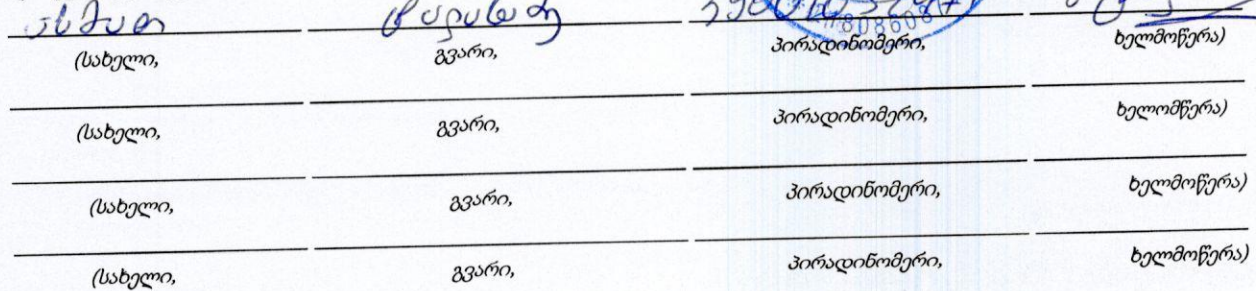 ასმათ
(სახელი, გვარი, პირადინომერი, ხელმოწერა)
(სახელი, გვარი, პირადინომერი, ხელომწერა)
(სახელი, გვარი, პირადინომერი, ხელმოწერა)
(სახელი, გვარი, პირადინომერი, ხელმოწერა)